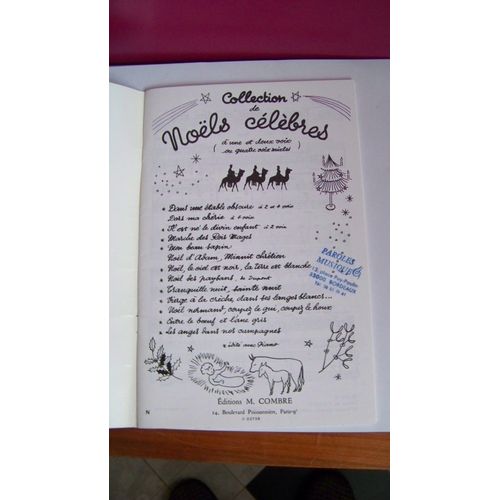 Collection
de
Noëls célèbres
(à une et deux voix
ou quatre voix mixtes)
* Dans une étable obscure à 2 et 4 voix
Dors ma chérie à 4 voix
* Il est né le divin enfant à 2 voix
* Marche des Rois Mages
* Mon beau sapin
* Noël d'Adam, Minuit chrétien
* Noël, le ciel est noir, la terre est blanche
* Noël des paysans, de Dupont
* Tranquille nuit, sainte nuit
* Vierge à la crèche, dans ses langes blancs...
* Noël normand, coupez le gui, coupez le houx
* Entre le bœuf et l'âne gris
* Les anges dans nos campagnes
* édité avec Piano
PAROLES
MUSIQUE
33000 BORDEAUX
Éditions M. COMBRE
14, Boulevard Poissonnière, Paris-9e
N